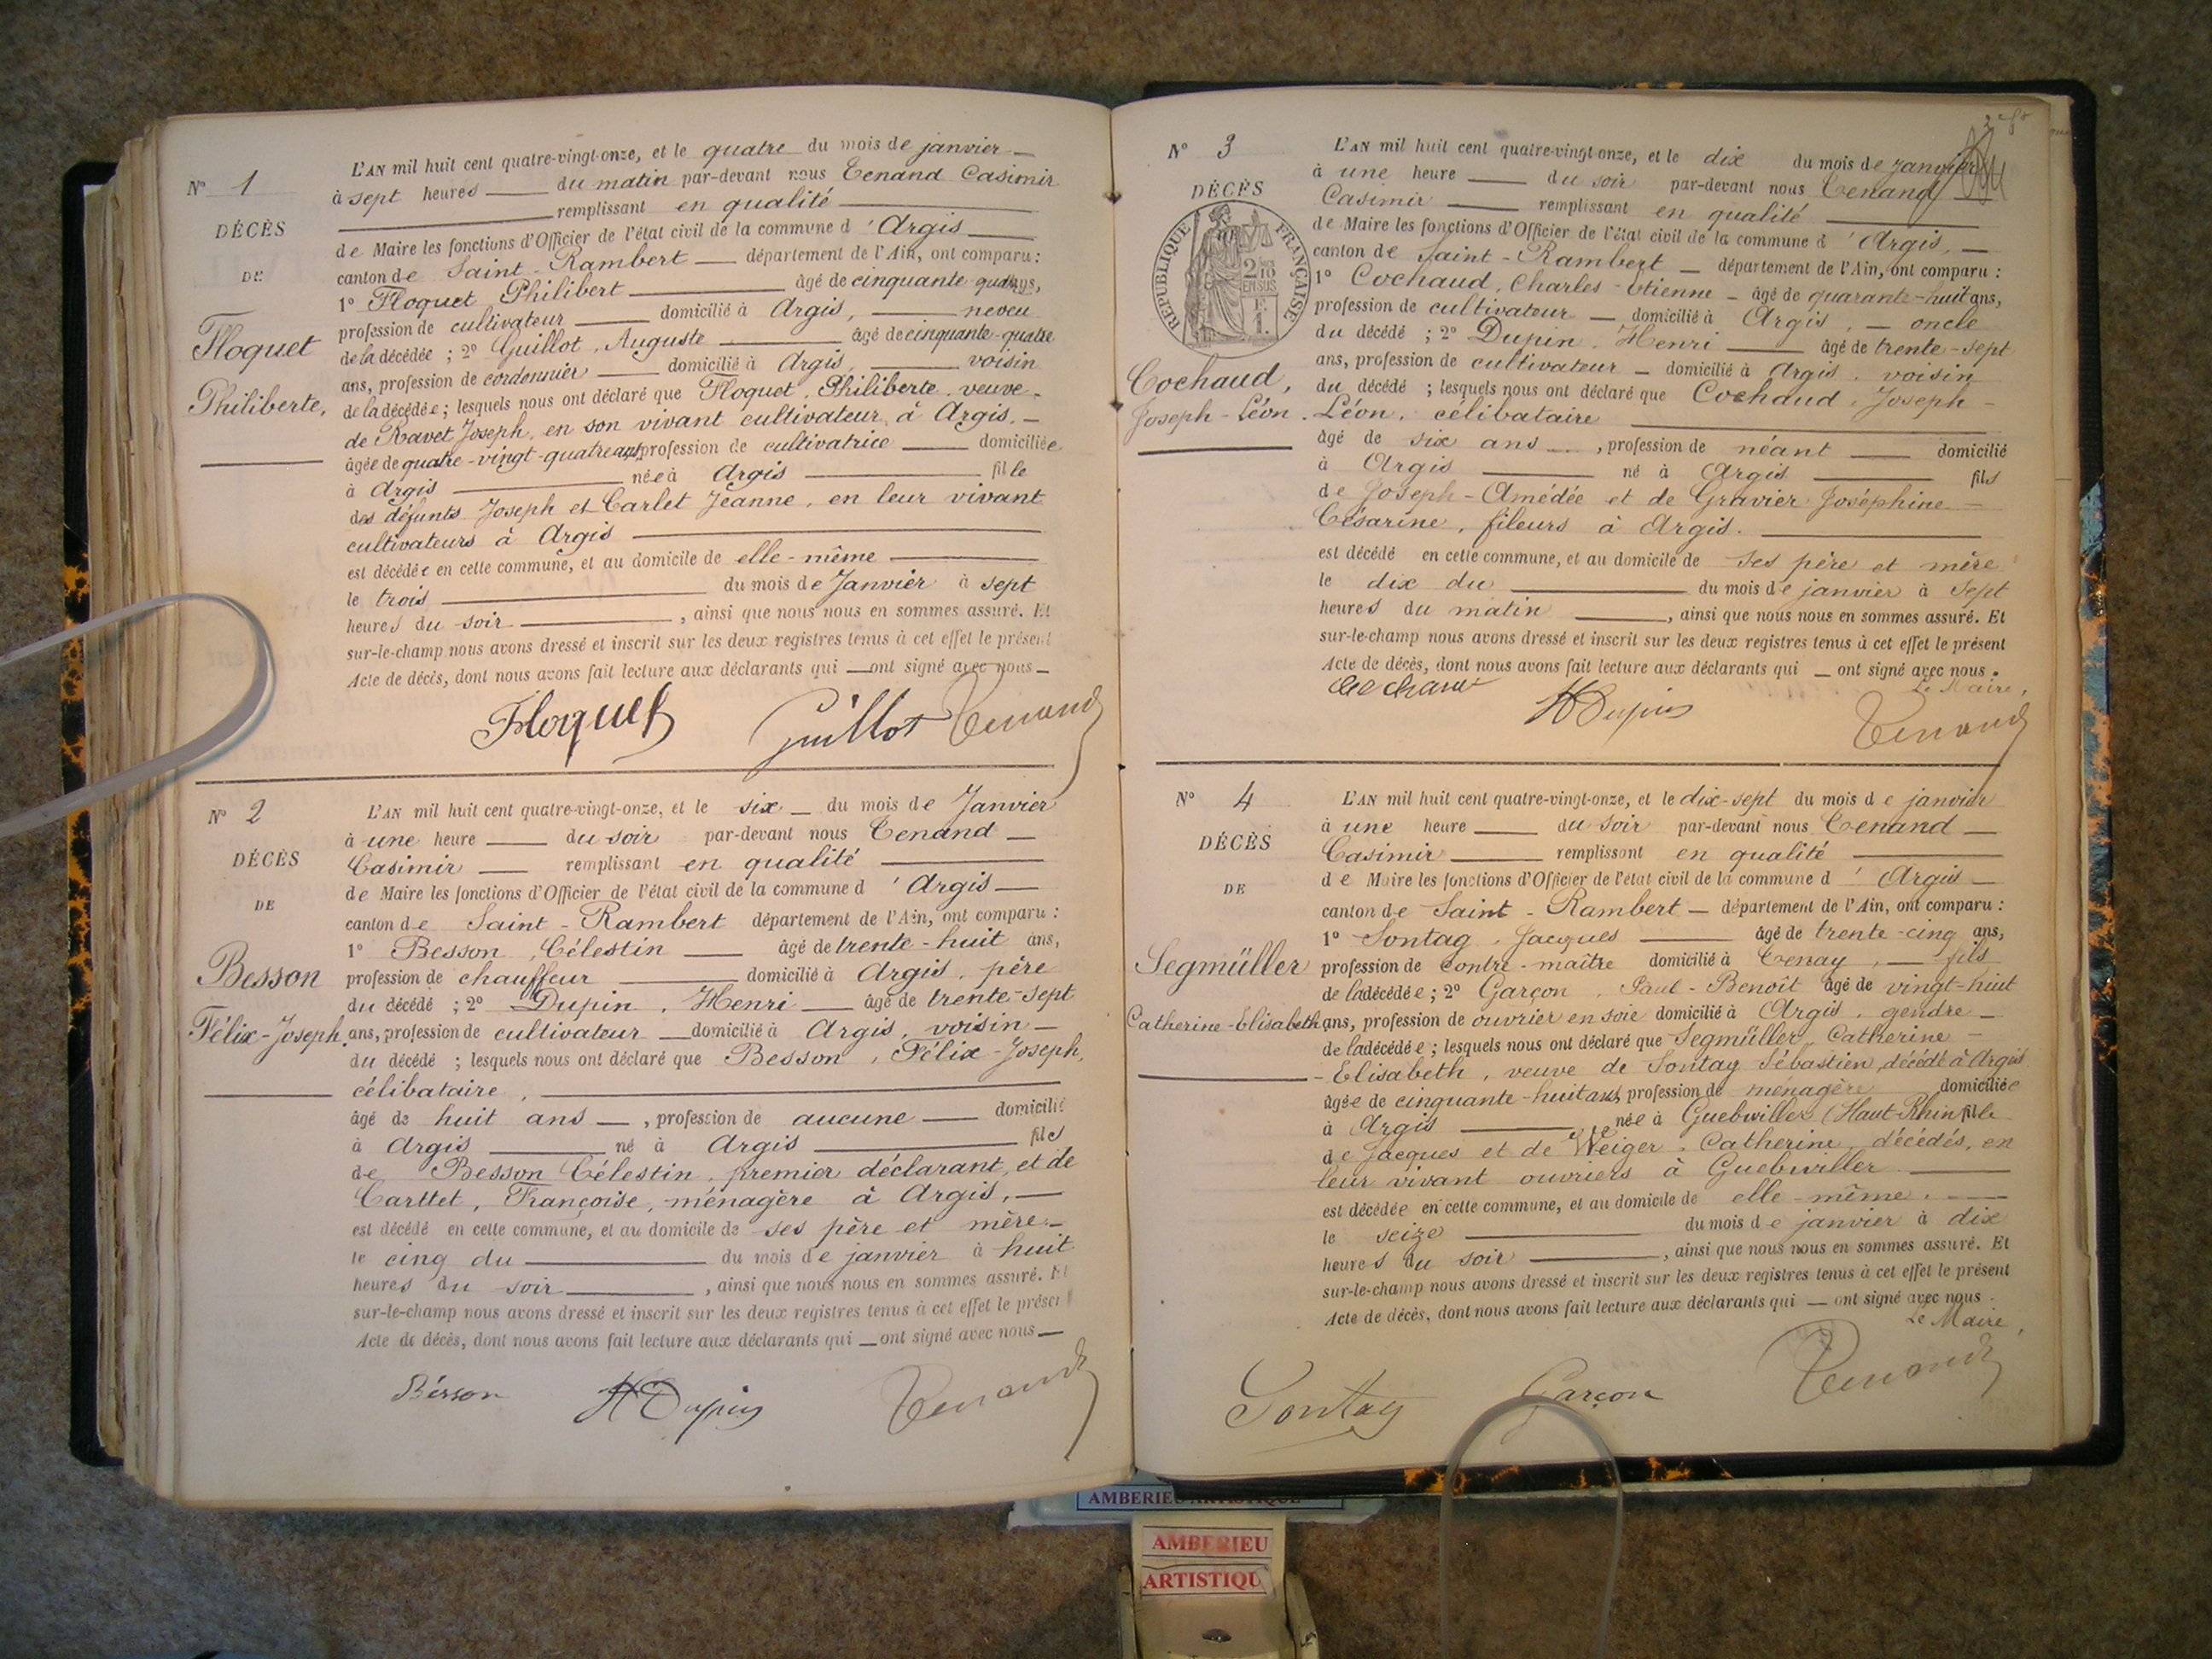 N° 1
DÉCÈS
DE
Floquet
Philiberte,
L'AN mil huit cent quatre-vingt-onze, et le quatre du mois de janvier
à sept heures du matin par-devant nous Tenand Casimir
remplissant en qualité
de Maire les fonctions d'Officier de l'état civil de la commune d'Argis
canton de Saint-Rambert département de l'Ain, ont comparu :
1° Floquet Philibert âgé de cinquante ans,
profession de cultivateur domicilié à Argis, neveu
de la décédée ; 2° Guillot, Auguste âgé de cinquante-quatre
ans, profession de cordonnier domicilié à Argis, voisin
de la décédée ; lesquels nous ont déclaré que Floquet, Philiberte, veuve
de Ravet Joseph, en son vivant cultivateur à Argis,
âgée de quatre-vingt-quatre ans, profession de cultivatrice domiciliée
à Argis née à Argis fille
des défunts Joseph et Carlet Jeanne, en leur vivant
cultivateurs à Argis
est décédée en cette commune, et au domicile de elle-même
le trois du mois de Janvier à sept
heures du soir, ainsi que nous nous en sommes assuré. Et
sur-le-champ nous avons dressé et inscrit sur les deux registres tenus à cet effet le présent
Acte de décès, dont nous avons fait lecture aux déclarants qui ont signé avec nous
Floquet Guillot Tenand
N° 2
DÉCÈS
DE
Besson
Félix-Joseph.
L'AN mil huit cent quatre-vingt-onze, et le six du mois de Janvier
à une heure du soir par-devant nous Tenand
Casimir remplissant en qualité
de Maire les fonctions d'Officier de l'état civil de la commune d'Argis
canton de Saint-Rambert département de l'Ain, ont comparu :
1° Besson, Célestin âgé de trente-huit ans,
profession de chauffeur domicilié à Argis, père
du décédé ; 2° Dupin, Henri âgé de trente-sept
ans, profession de cultivateur domicilié à Argis, voisin
du décédé ; lesquels nous ont déclaré que Besson, Félix-Joseph,
célibataire,
âgé de huit ans, profession de aucune domicilié
à Argis né à Argis fils
de Besson Célestin, premier déclarant, et de
Carttet, Françoise, ménagère à Argis,
est décédé en cette commune, et au domicile de ses père et mère
le cinq du du mois de janvier à huit
heures du soir, ainsi que nous nous en sommes assuré. Et
sur-le-champ nous avons dressé et inscrit sur les deux registres tenus à cet effet le présent
Acte de décès, dont nous avons fait lecture aux déclarants qui ont signé avec nous
Besson H Dupin Tenand
N° 3
DÉCÈS
RÉPUBLIQUE FRANÇAISE
2/10 EN SUS
Cochaud,
Joseph-Léon.
L'AN mil huit cent quatre-vingt-onze, et le dix du mois de janvier
à une heure du soir par-devant nous Tenand
Casimir remplissant en qualité
de Maire les fonctions d'Officier de l'état civil de la commune d'Argis,
canton de Saint-Rambert département de l'Ain, ont comparu :
1° Cochaud, Charles-Etienne âgé de quarante-huit ans,
profession de cultivateur domicilié à Argis, oncle
du décédé ; 2° Dupin, Henri âgé de trente-sept
ans, profession de cultivateur domicilié à Argis, voisin
du décédé ; lesquels nous ont déclaré que Cochaud, Joseph-
Léon, célibataire
âgé de six ans, profession de néant domicilié
à Argis né à Argis fils
de Joseph-Amédée et de Gravier Joséphine
Césarine, fileurs à Argis.
est décédé en cette commune, et au domicile de ses père et mère
le dix du du mois de janvier à sept
heures du matin, ainsi que nous nous en sommes assuré. Et
sur-le-champ nous avons dressé et inscrit sur les deux registres tenus à cet effet le présent
Acte de décès, dont nous avons fait lecture aux déclarants qui ont signé avec nous.
Le Maire,
Cochaud H Dupin Tenand
N° 4
DÉCÈS
DE
Segmüller
Catherine-Elisabeth
L'AN mil huit cent quatre-vingt-onze, et le dix-sept du mois de janvier
à une heure du soir par-devant nous Tenand
Casimir remplissant en qualité
de Maire les fonctions d'Officier de l'état civil de la commune d'Argis
canton de Saint-Rambert département de l'Ain, ont comparu :
1° Sontag, Jacques âgé de trente-cinq ans,
profession de contre-maître domicilié à Tenay, fils
de la décédée ; 2° Garçon, Paul-Benoît âgé de vingt-huit
ans, profession de ouvrier en soie domicilié à Argis, gendre
de la décédée ; lesquels nous ont déclaré que Segmüller, Catherine
-Elisabeth, veuve de Sontag Sébastien, décédé à Argis
âgée de cinquante-huit ans, profession de ménagère domiciliée
à Argis née à Guebwiller (Haut-Rhin) fille
de Jacques et de Weiger, Catherine, décédés, en
leur vivant ouvriers à Guebwiller
est décédée en cette commune, et au domicile de elle-même.
le seize du mois de janvier à dix
heures du soir, ainsi que nous nous en sommes assuré. Et
sur-le-champ nous avons dressé et inscrit sur les deux registres tenus à cet effet le présent
Acte de décès, dont nous avons fait lecture aux déclarants qui ont signé avec nous.
Le Maire,
Sontag Garçon Tenand
AMBERIEU ARTISTIQUE
AMBERIEU
ARTISTIQU